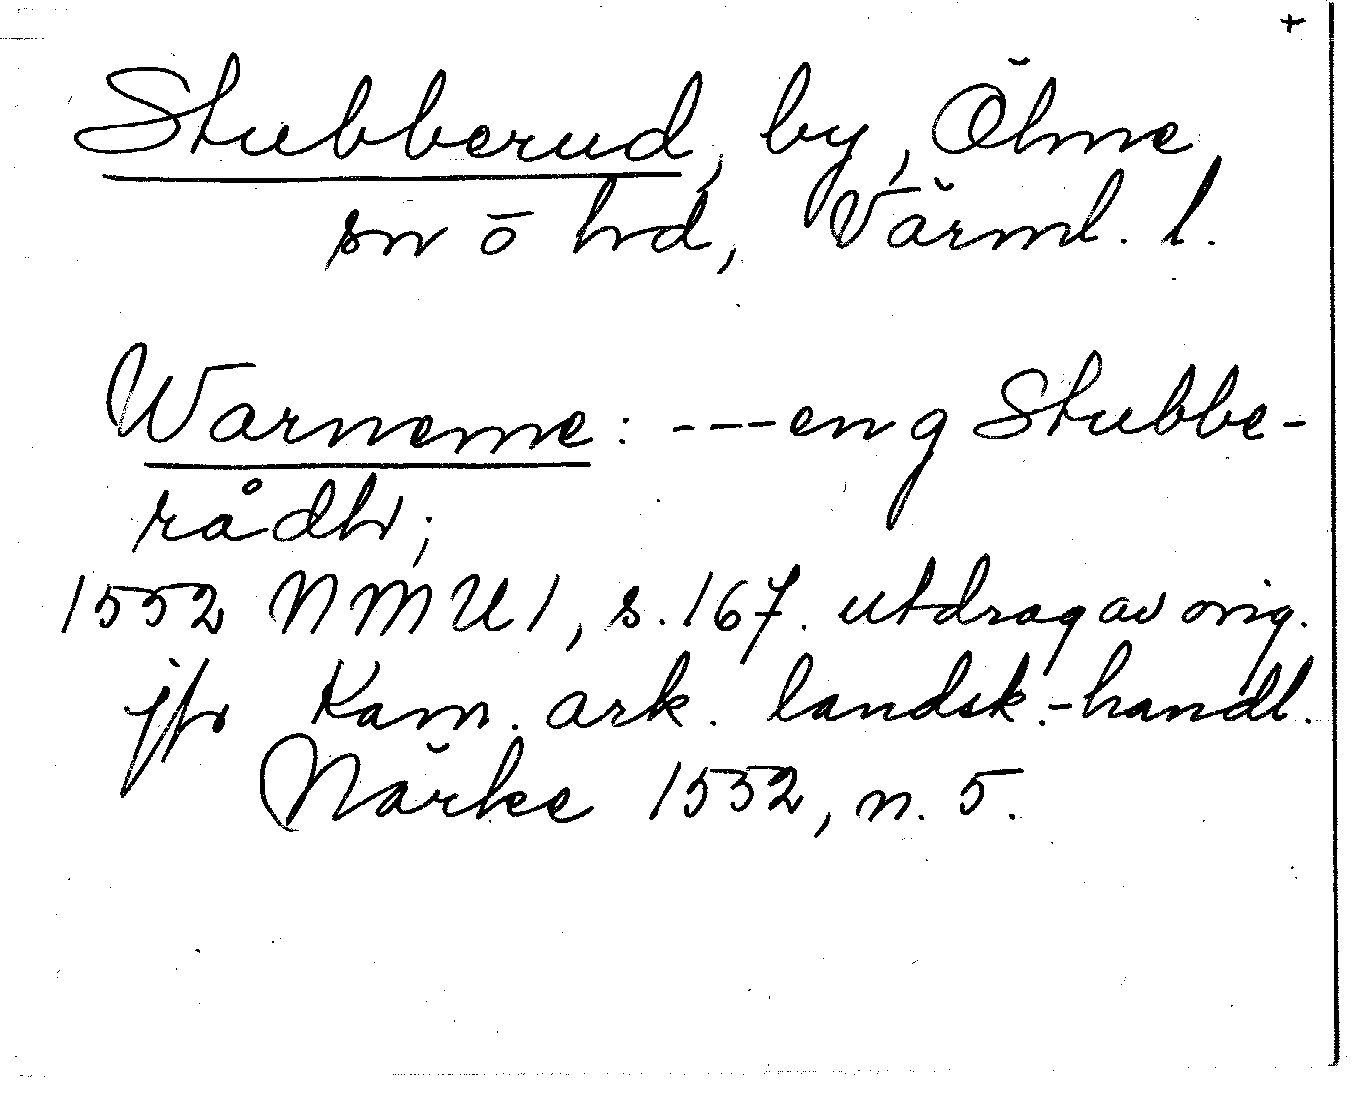 +
Stubberud, by, Ölme
sn o hd, Värml. l.
Warneme: ---en g Stubbe-
rådhr;
1552 NMU1, s. 167. utdrag av orig.
jfr Kam. ark. landsk.-handl.
Närke 1552, n. 5.